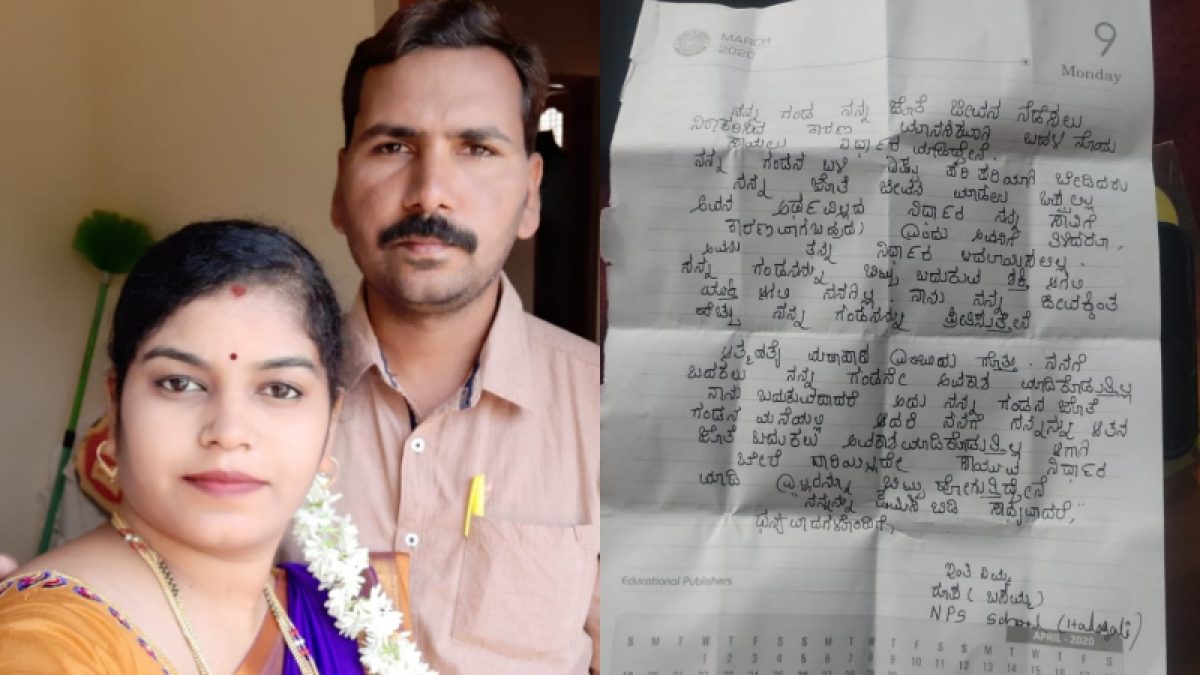 MARCH
2020
9
Monday
ನನ್ನ ಗಂಡ ನನ್ನ ಜೊತೆ ಜೀವನ ನೆಡೆಸಲು
ನಿರಾಕರಿಸಿದ ಕಾರಣ ಮಾನಸಿಕವಾಗಿ ಬಹಳ ನೊಂದು
ಸಾಯಲು ನಿರ್ಧಾರ ಮಾಡಿದ್ದೇನೆ.
ನನ್ನ ಗಂಡನ ಬಳಿ ಎಷ್ಟು ಪರಿ ಪರಿಯಾಗಿ ಬೇಡಿದರು
ನನ್ನ ಜೊತೆ ಜೀವನ ಮಾಡಲು ಒಪ್ಪಲಿಲ್ಲ
ಅವನ ಅರ್ಥವಿಲ್ಲದ ನಿರ್ಧಾರ ನನ್ನ ಸಾವಿಗೆ
ಕಾರಣವಾಗಬಹುದು ಎಂದು ಅವನಿಗೆ ತಿಳಿದರೂ,
ಅವನು ತನ್ನ ನಿರ್ಧಾರ ಬದಲಾಯಿಸಲಿಲ್ಲ.
ನನ್ನ ಗಂಡನನ್ನು ಬಿಟ್ಟು ಬದುಕುವ ಶಕ್ತಿ ಆಗಲಿ
ಯುಕ್ತಿ ಆಗಲಿ ನನಗಿಲ್ಲ. ನಾನು ನನ್ನ ಜೀವಕ್ಕಿಂತ
ಹೆಚ್ಚು ನನ್ನ ಗಂಡನನ್ನು ಪ್ರೀತಿಸುತ್ತೇನೆ
ಆತ್ಮಹತ್ಯೆ ಮಹಾಪಾಪ ಎಂಬುದು ಗೊತ್ತು. ನನಗೆ
ಬದುಕಲು ನನ್ನ ಗಂಡನೇ ಅವಕಾಶ ಮಾಡಿಕೊಡುತ್ತಿಲ್ಲ
ನಾನು ಬದುಕುವುದಾದರೆ ಅದು ನನ್ನ ಗಂಡನ ಜೊತೆ
ಗಂಡನ ಮನೆಯಲ್ಲಿ ಆದರೆ ನನಗೆ ನನ್ನನ್ನು ಆತನ
ಜೊತೆ ಬದುಕಲು ಅವಕಾಶಮಾಡಿಕೊಡುತ್ತಿಲ್ಲ ಹಾಗಾಗಿ
ಬೇರೆ ದಾರಿಯಿಲ್ಲದೇ ಸಾಯುವ ನಿರ್ಧಾರ
ಮಾಡಿ ಎಲ್ಲರನ್ನೂ ಬಿಟ್ಟು ಹೋಗುತ್ತಿದ್ದೇನೆ
ನನ್ನನ್ನು ಕ್ಷಮಿಸಿ ಬಿಡಿ ಸಾಧ್ಯವಾದರೆ,
ಧನ್ಯವಾದಗಳೊಂದಿಗೆ,
ಇಂತಿ ನಿಮ್ಮ
NPS School (Halagali)
Educational Publishers
APRIL - 2020
S M T W T F S S M T W T F S S M T W T F S
1 2 3 4 5 6 7 8 9 10 11 12 13 14 15 16 17 18